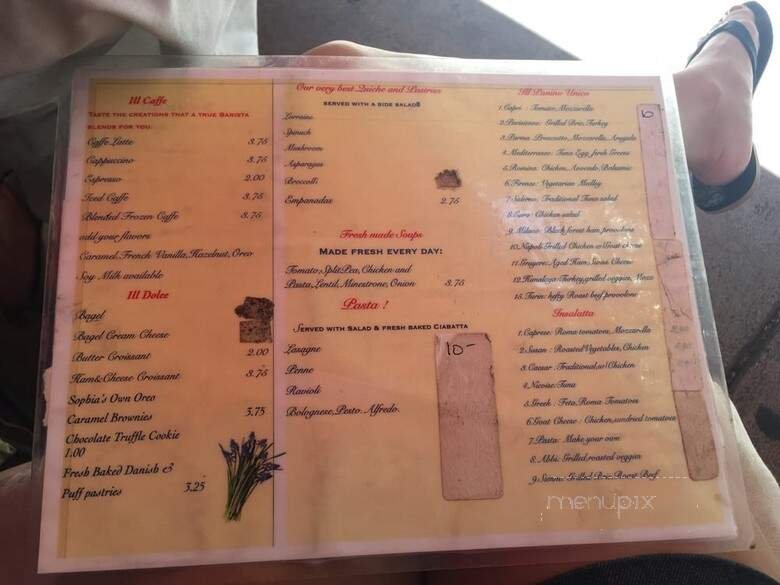 Ill Caffe
Taste the creations that a true Barista
blends for you.
Caffe Latte 3.75
Cappuccino 3.75
Espresso 2.00
Iced Caffe 3.75
Blended Frozen Caffe 3.75
add your flavors
Caramel, French Vanilla, Hazelnut, Oreo
Soy Milk available
Ill Dolce
Bagel
Bagel Cream Cheese
Butter Croissant 2.00
Ham&Cheese Croissant 3.75
Sophia's Own Oreo
Caramel Brownies 3.75
Chocolate Truffle Cookie
1.00
Fresh Baked Danish &
Puff pastries 3.25
Our very best Quiche and Pastries
served with a side salad$
Lorraine
Spinach
Mushroom
Asparagus
Broccolli
Empanadas 2.75
Fresh made Soups
Made fresh every day:
Tomato, Split Pea, Chicken and
Pasta, Lentil, Minestrone, Onion 3.75
Pasta !
Served with Salad & fresh baked Ciabatta
Lasagne
Penne
Ravioli
Bolognese, Pesto. Alfredo.
10-
Ill Panino Unico
6
1. Capri : Tomato, Mozzarella
2. Parisienne: Grilled Brie, Turkey
3. Parma: Proscuitto, Mozzarella, Arugula
4. Mediterraneo: Tuna Egg, fresh Greens
5. Romina: Chicken, Avocado, Balsamic
6. Firenze: Vegetarian Medley
7. Salerno: Traditional Tuna salad
8. : Chicken salad
9. Milano: Black forest ham provolone
10. Napoli Grilled Chicken w/Goat cheese
11. Gruyere: Aged Ham, Swiss Cheese
12. Turkey, grilled veggies, Mozz
13. Turin: hefty Roast beef provolone
Insalatta
1. Caprese: Roma tomatoes, Mozzarella
2. Susan : Roasted Vegetables, Chicken
3. Caesar : Traditional, w/ Chicken
4. Nicoise: Tuna
5. Greek : Feta, Roma Tomatoes
6. Goat Cheese : Chicken, sundried tomatoes
7. Pasta : Make your own
8. Abbi: Grilled, roasted veggies
9. Simm: Grilled Brie, Roast Beef
menupix